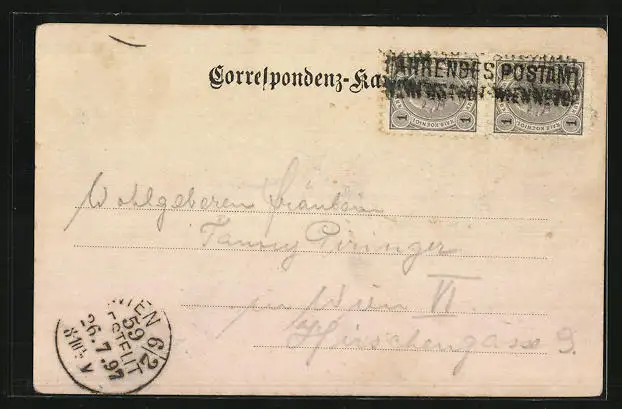 Correspondenz-Ka
FAHRENDES POSTAMT
1 1 1 1
Wohlgeboren Fräulein
Fanny Piringer
in Wien VI
Hirschengasse 9.
WIEN 6/2
59
BESTELLT
26.7.97